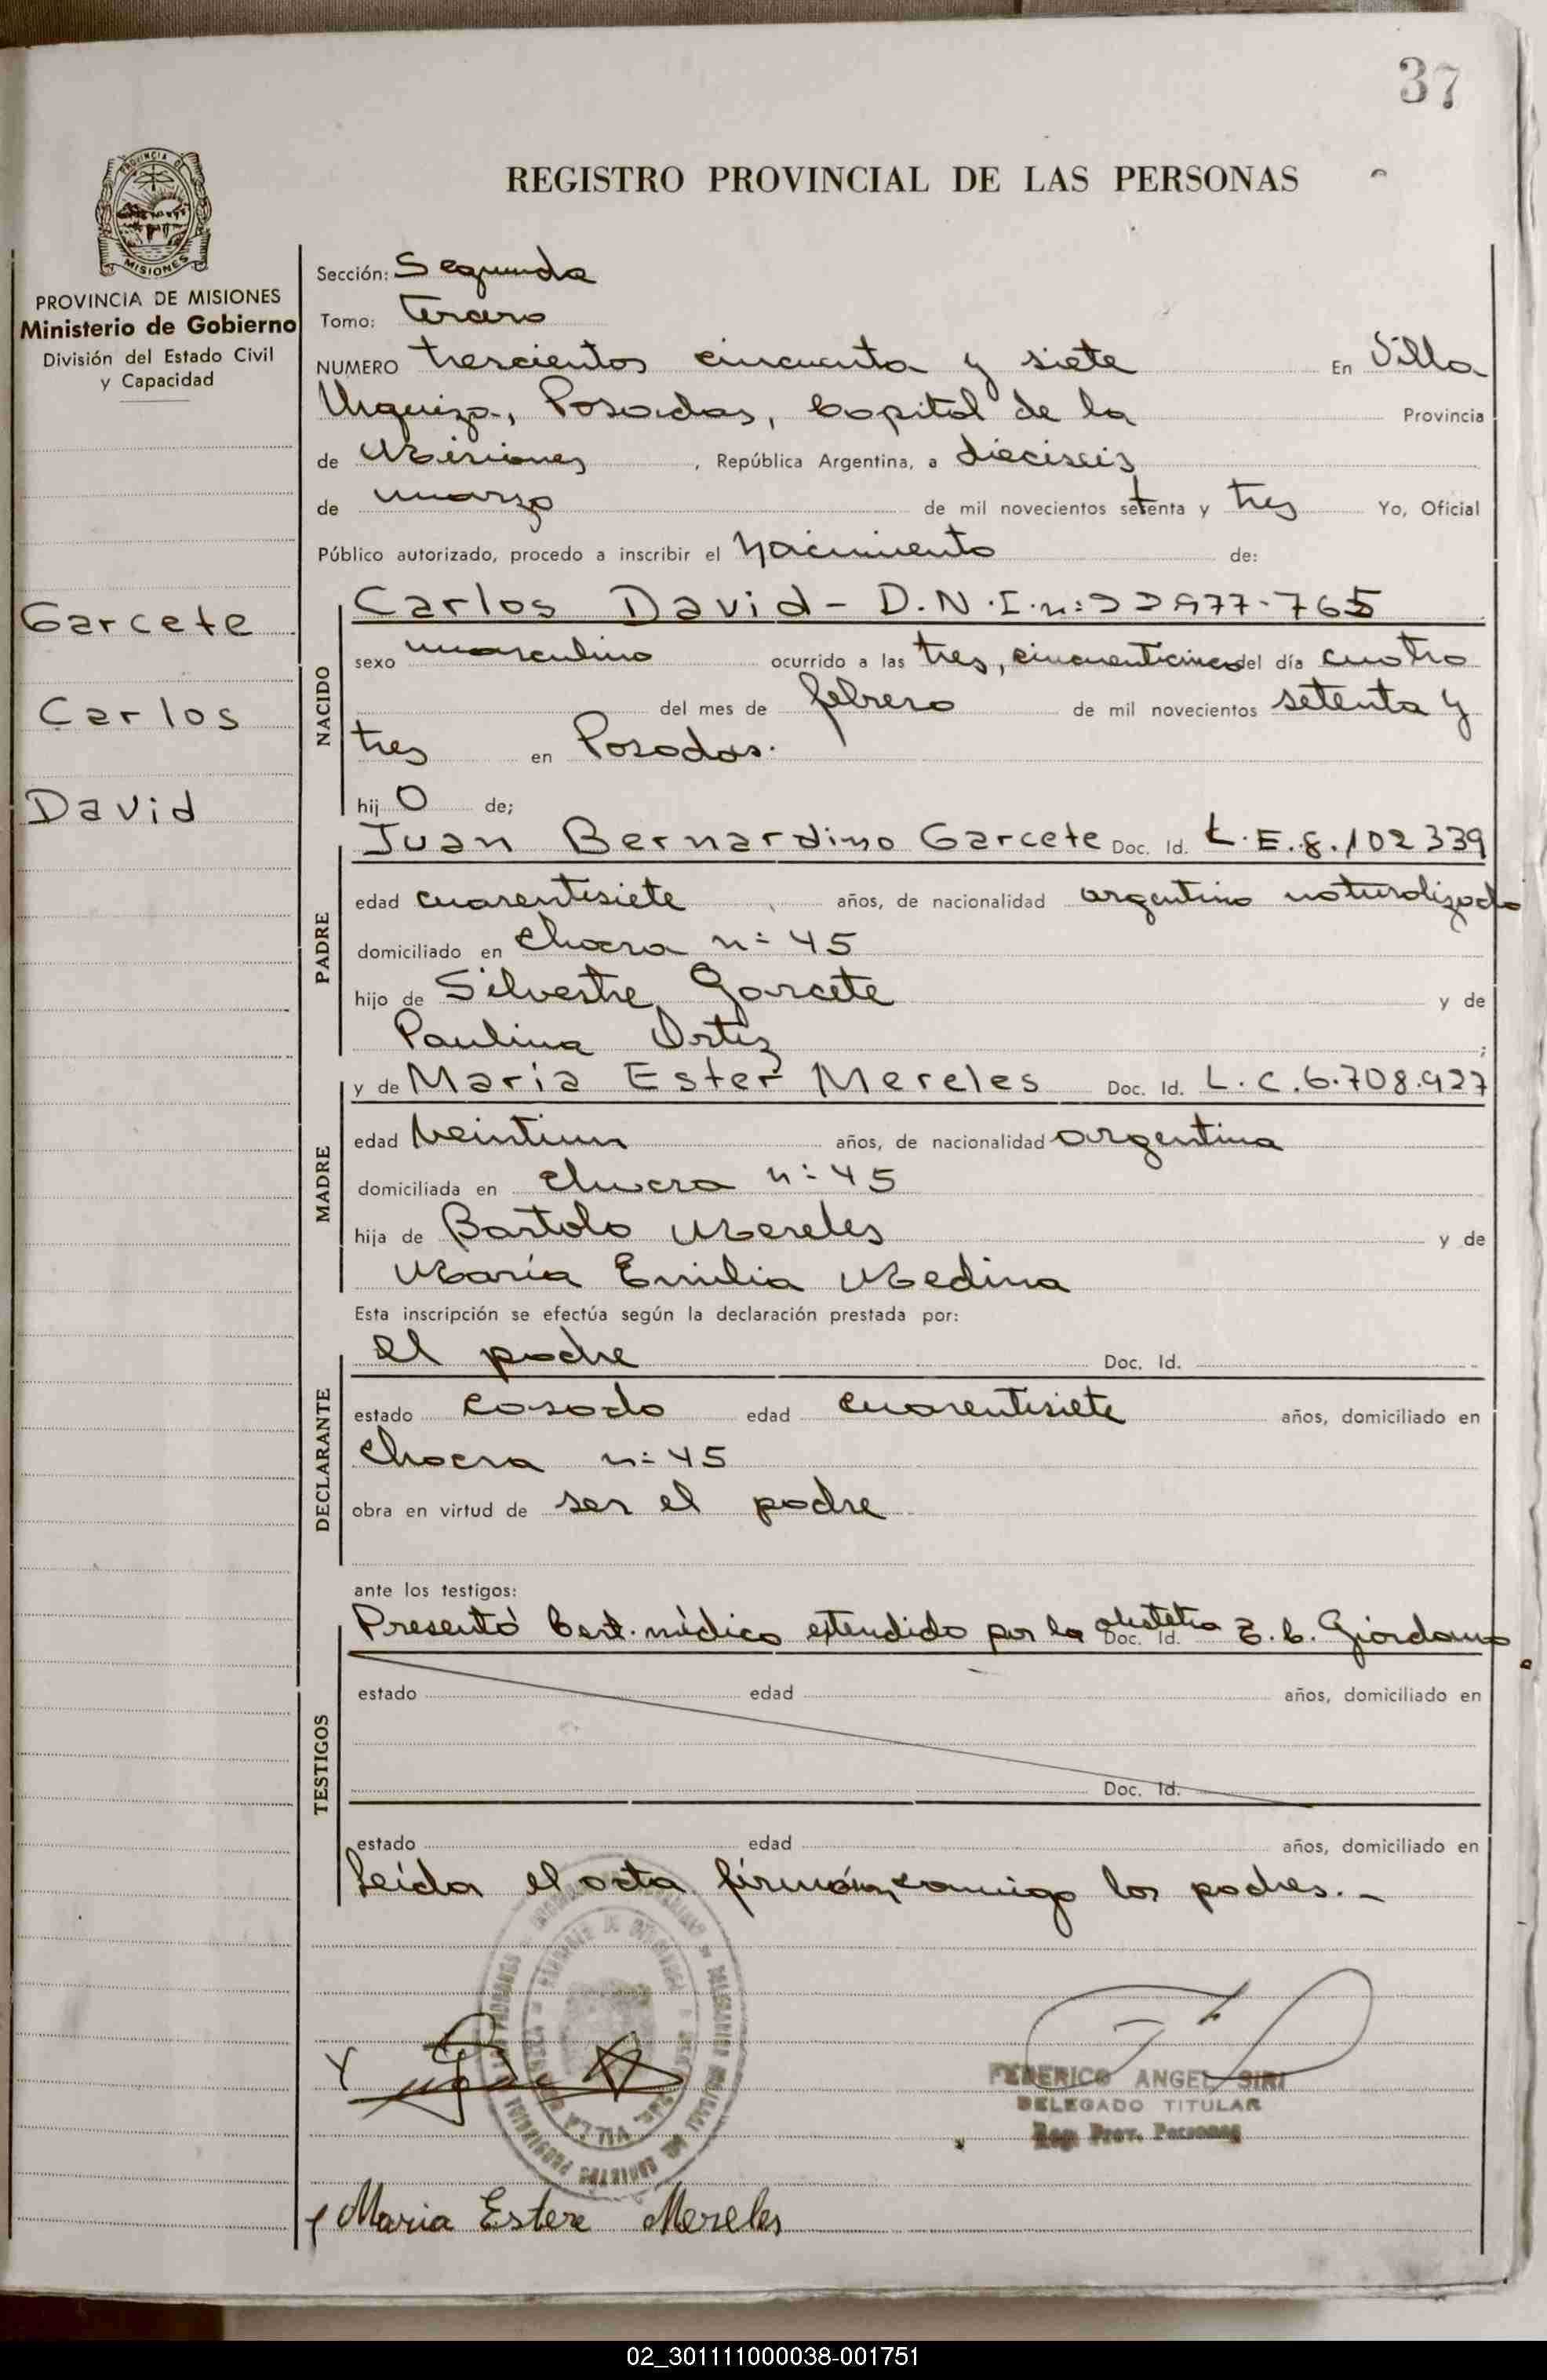 37
REGISTRO PROVINCIAL DE LAS PERSONAS
PROVINCIA DE MISIONES
PROVINCIA DE MISIONES
Ministerio de Gobierno
División del Estado Civil
y Capacidad
Garcete
Carlos
David
Sección: Segunda
Tomo: tercero
NUMERO trescientos cincuenta y siete En Villa
Urquiza, Posadas, Capital de la Provincia
de Misiones, República Argentina, a dieciseis
de marzo de mil novecientos setenta y tres Yo, Oficial
Público autorizado, procedo a inscribir el nacimiento de:
NACIDO
Carlos David - D.N.I. n: 22977-765
sexo masculino ocurrido a las tres, cincuenticinco del día cuatro
del mes de febrero de mil novecientos setenta y
tres en Posadas.
hij o de;
PADRE
Juan Bernardino Garcete Doc. Id. L.E. 8.102339
edad cuarentisiete años, de nacionalidad argentino naturalizado
domiciliado en chacra n: 45
hijo de Silvestre Garcete y de
Paulina Ortiz ;
MADRE
y de María Ester Mereles Doc. Id. L.C. 6.708.927
edad veintiun años, de nacionalidad argentina
domiciliada en chacra n: 45
hija de Bartolo Mereles y de
María Emilia Medina
Esta inscripción se efectúa según la declaración prestada por:
DECLARANTE
el padre Doc. Id.
estado casado edad cuarentisiete años, domiciliado en
chacra n: 45
obra en virtud de ser el padre
ante los testigos:
TESTIGOS
Presentó Cert. médico extendido por la obstetra Doc. Id. E. C. Giordano
estado edad años, domiciliado en
Doc. Id.
estado edad años, domiciliado en
Leída el acta firman conmigo los padres.-
FEDERICO ANGEL SIRI
DELEGADO TITULAR
Reg. Prov. Personas
Maria Ester Mereles
02_301111000038-001751